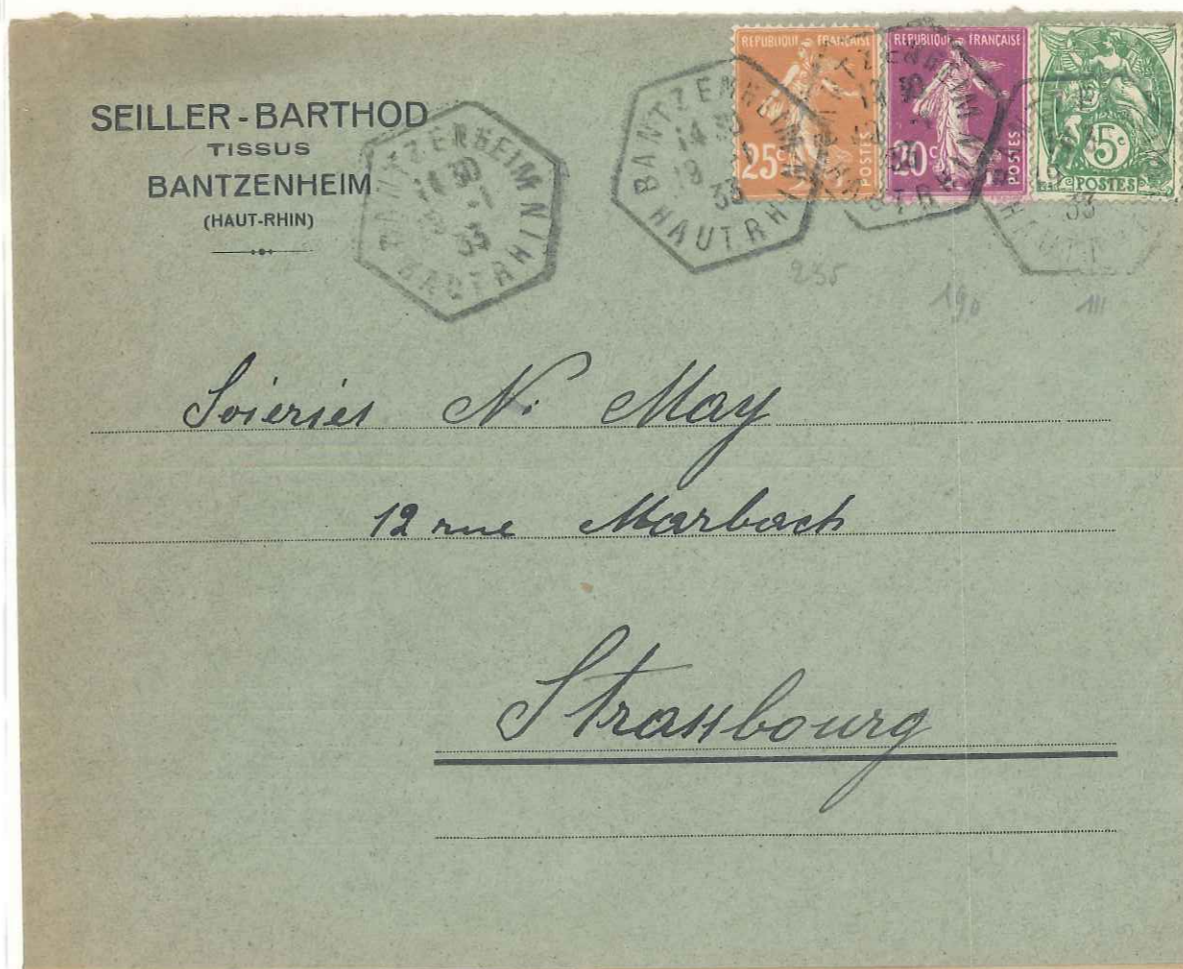 SEILLER - BARTHOD
TISSUS
BANTZENHEIM
(HAUT-RHIN)
BANTZENHEIM
14 30
33
HAUT RHIN
BANTZENHEIM
14 30
19
33
HAUT RHIN
REPUBLIQUE FRANÇAISE
25c
POSTES
REPUBLIQUE FRANÇAISE
20c
POSTES
5c
POSTES
33
235
190
111
Soieries N. May
12 rue Marbach
Strassbourg